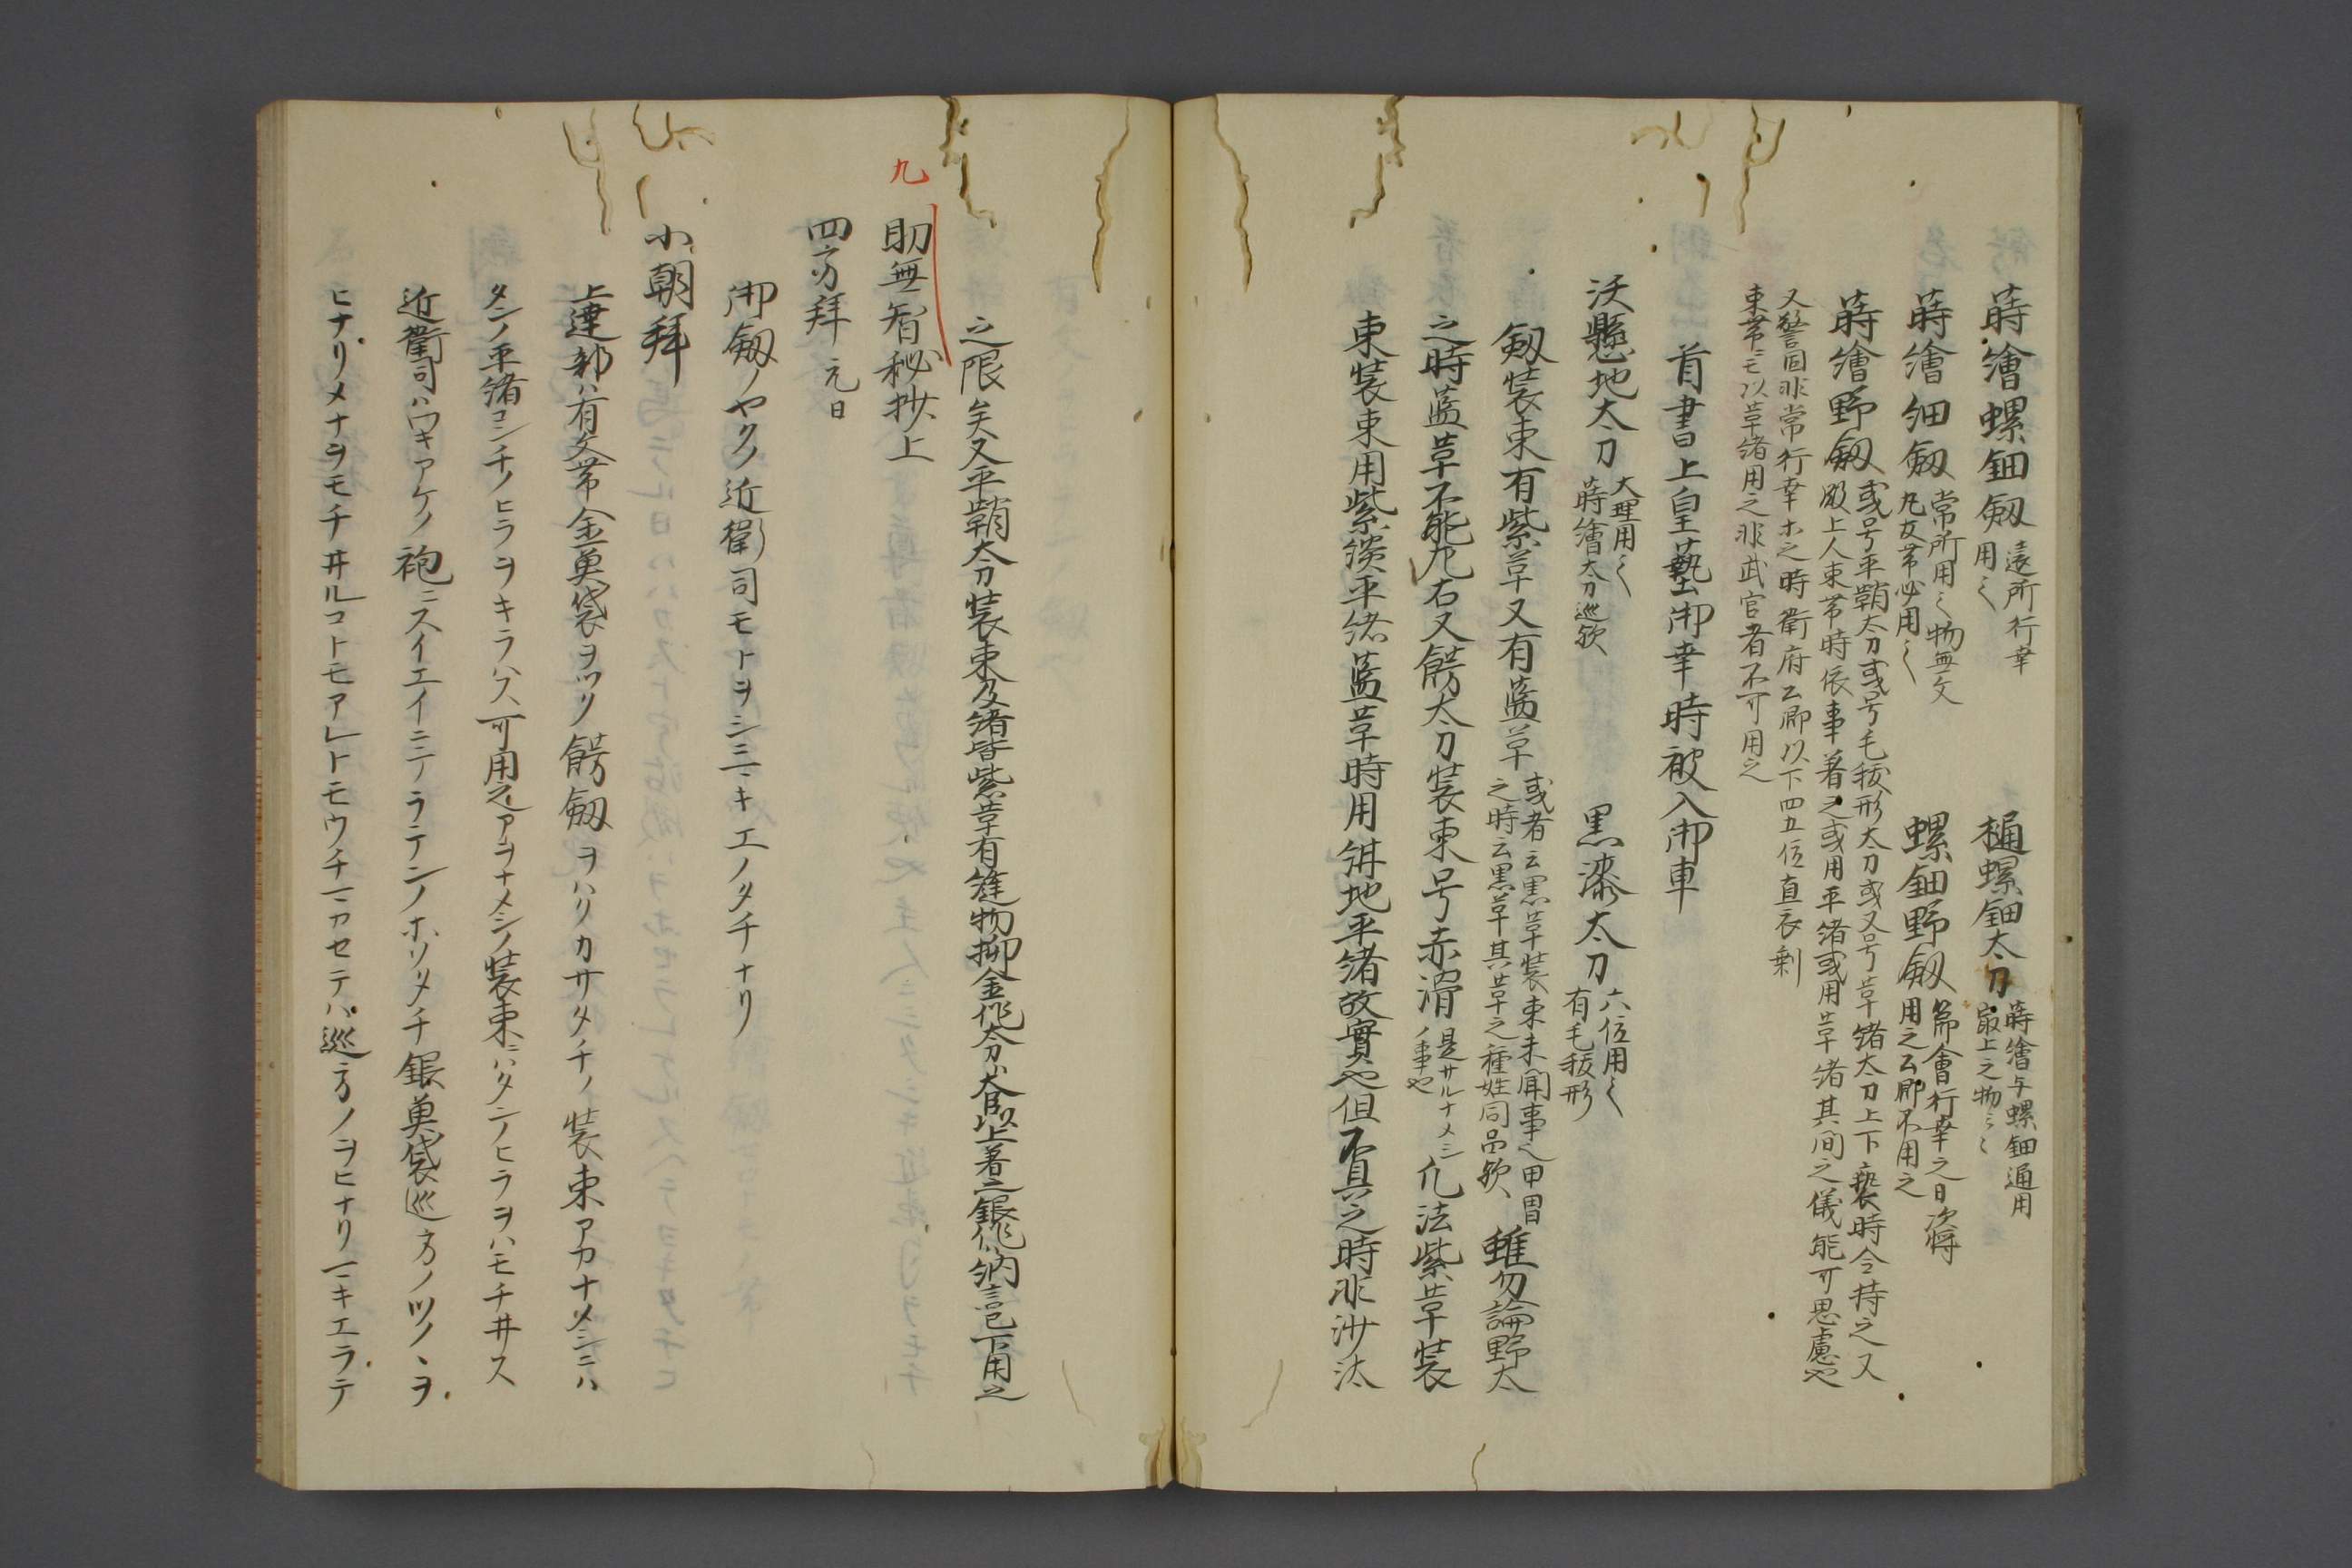 蒔繪螺鈿劔 遠所行幸用之 樋螺鈿太刀 蒔繪与螺鈿通用最上之物々々
蒔繪細劔 常所用之物無文丸友帯必用之 螺鈿野劔 節會行幸之日次将用之公卿不用之
蒔繪野劔 或号平鞘太刀或号毛抜形太刀或又号革緒太刀上下褻時令持之又殿上人束帯時依事着之或用平緒或用革緒其間之儀能可思慮也
又警固非常行幸ホ之時衛府公卿以下四五位直衣剰
束帯ニモ以革緒用之非武官者不可用之
首書上皇藝御幸時被入御車
沃懸地太刀 大理用之蒔繪太刀巡欤 黒漆太刀 六位用之有毛抜形
劔装束有紫革又有藍革 或者云黒革装束未聞事也甲冑之時云黒革其革之種姓同品欤 雖勿論野太
之時藍革不能左右又餝太刀装束号赤滑 是サルナメシノ事也 凡法紫革装
束装束用紫淡平緒藍革時用紺地平緒故實也但不具之時非沙汰
之限矣又平鞘太刀装束及緒皆紫革有縫物抑金作太刀ハ大臣以上着之銀作ハ納言已下用之
九
助無智秘抄上
四方拜 元日
御劔ノヤク近衛司モトヲシニマキエノタチナリ
小朝拜
上達部ハ有文帯金奠袋ヲツク餝劔ヲハクカサタチノ装束アカナメシニハ
タンノ平緒コンチノヒラヲキラハス可用之アヲナメシノ装束ニハタンノヒラヲハモチヰス
近衛司ハワキアケノ袍ニスイエイニテラテンノホソタチ銀奠袋巡方ノツノヽヲ
ヒナリメナヲモチヰルコトモアレトモウチマカセテハ巡方ノヲヒナリマキエラテ